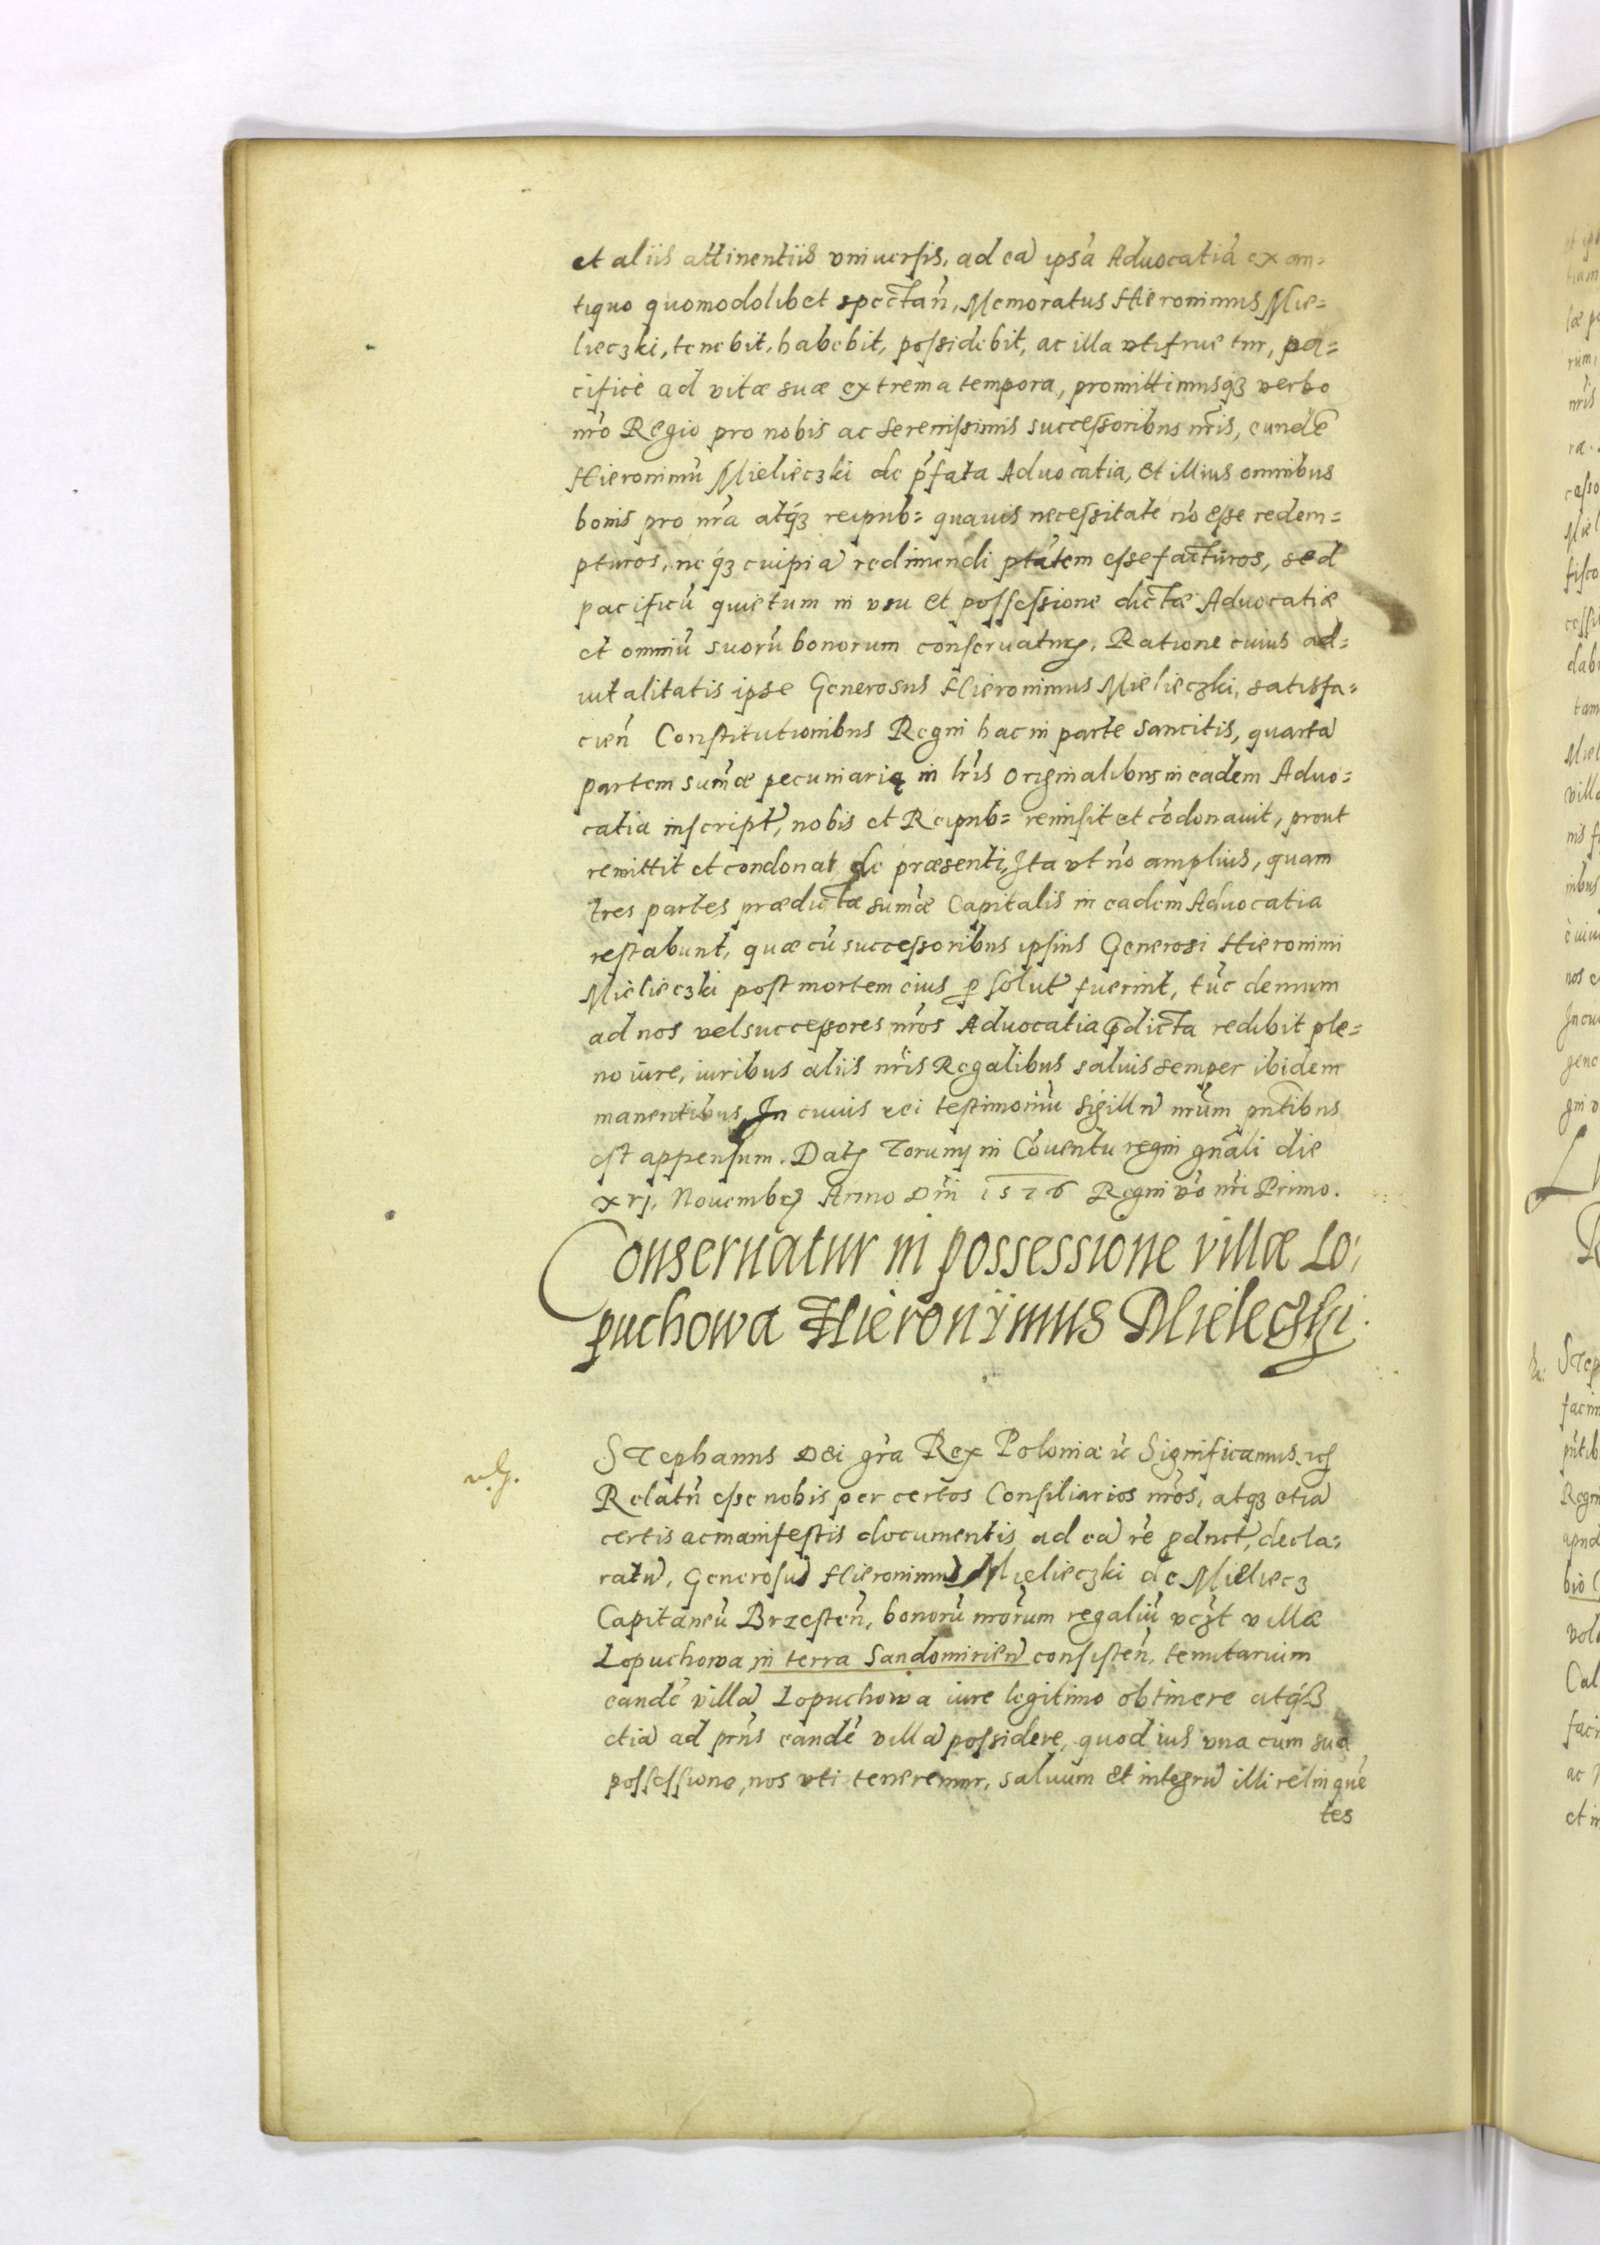 et aliis attinentiis vniuersis, ad eā ipsā Aduocatiā ex an=
tiquo quomodolibet spectañ, Memoratus Hieronimus Mie=
lieczki, tenebit, habebit, possidebit, ac illa vtifruetur, pa=
cificè ad vitæ suæ extrema tempora, promittimusq3 verbo
nr̃o Regio pro nobis ac serenissimis successoribus nr̃is, eundē
Hieronimū Mielieczki de p̃fata Aduocatia, et illius omnibus
bonis pro nr̃a atq3 reipub= quauis necessitate nō esse redem=
pturos, neq3 cuipiā redimendi ptātem esse facturos, sed
pacificū quietum in vsu et possessione dictæ Aduocatiæ
et omniū suorū bonorum conseruaturos. Ratione cuius ad=
uitalitatis ipse Generosus Hieronimus Mielieczki, satisfa=
cień Constitutionibus Regni hac in parte sancitis, quartā
partem sum̃æ pecuniarię in lr̃is originalibus in eadem Aduo=
catia inscript̃, nobis et Reipub= remisit et cōdonauit, prout
remittit et condonat de præsenti, Ita vt nō amplius, quam
tres partes prædictæ sum̃æ Capitalis in eadem Aduocatia
restabunt, quæ cū successoribus ipsius Generosi Hieronimi
Mielieczki post mortem eius ꝑsolut̃ fuerint, tūc demum
ad nos vel successores nr̃os Aduocatia p̃dicta redibit ple=
no iure, iuribus aliis nr̃is Regalibus saluis semper ibidem
manentibus, In cuius rei testimoniū Sigillū nr̃um pñtibus
est appensum. Datꝫ Toruny in Cōuentu regni gñali die
xvj. Nouembꝫ Anno Dñi 1576 Regni vō nr̃i Primo.
Conseruatur in possessione villæ Lo,
puchowa Hieronÿmus Mieleczki.
Stephanus Dei gr̃a Rex Poloniæ ꝛc Significamus. ꝛc
Relatū esse nobis per certos Consiliarios nr̃os, atq3 etiā
certis ac manifestis documentis ad eā rē ꝓduct̃, decla=
ratū, Generosū Hieronimū Mielieczki de Mieliecz
Capitaneū Brzesteñ, bonorū nr̃orum regaliū vꝫt villæ
Lopuchowa in terra Sandomirieñ consisteñ, tenutarium
eandē villā Lopuchowa iure legitimo obtinere atq3
etiā ad pr̃ns eandē villā possidere, quod ius vna cum sua
possessione, nos vti teneremur, saluum et integrū illi relinquē
tes